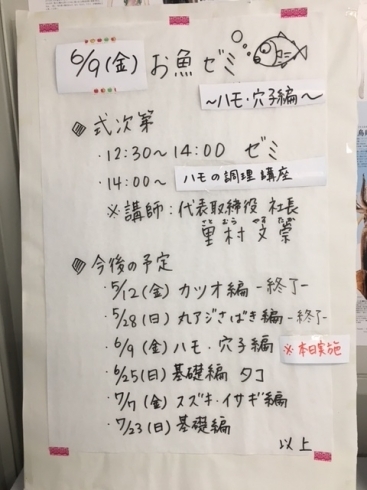 6/9(金) お魚ゼミ
～ハモ・穴子編～
式次第
・12:30～14:00 ゼミ
・14:00～ ハモの調理講座
※講師:代表取締役 社長
さと むら やす たか
里村文崇
今後の予定
・5/12(金) カツオ編 -終了-
・5/28(日) 丸アジさばき編 -終了-
・6/9(金) ハモ・穴子編 ※本日実施
・6/25(日) 基礎編 タコ
・7/7(金) スズキ・イサギ編
・7/23(日) 基礎編
以上